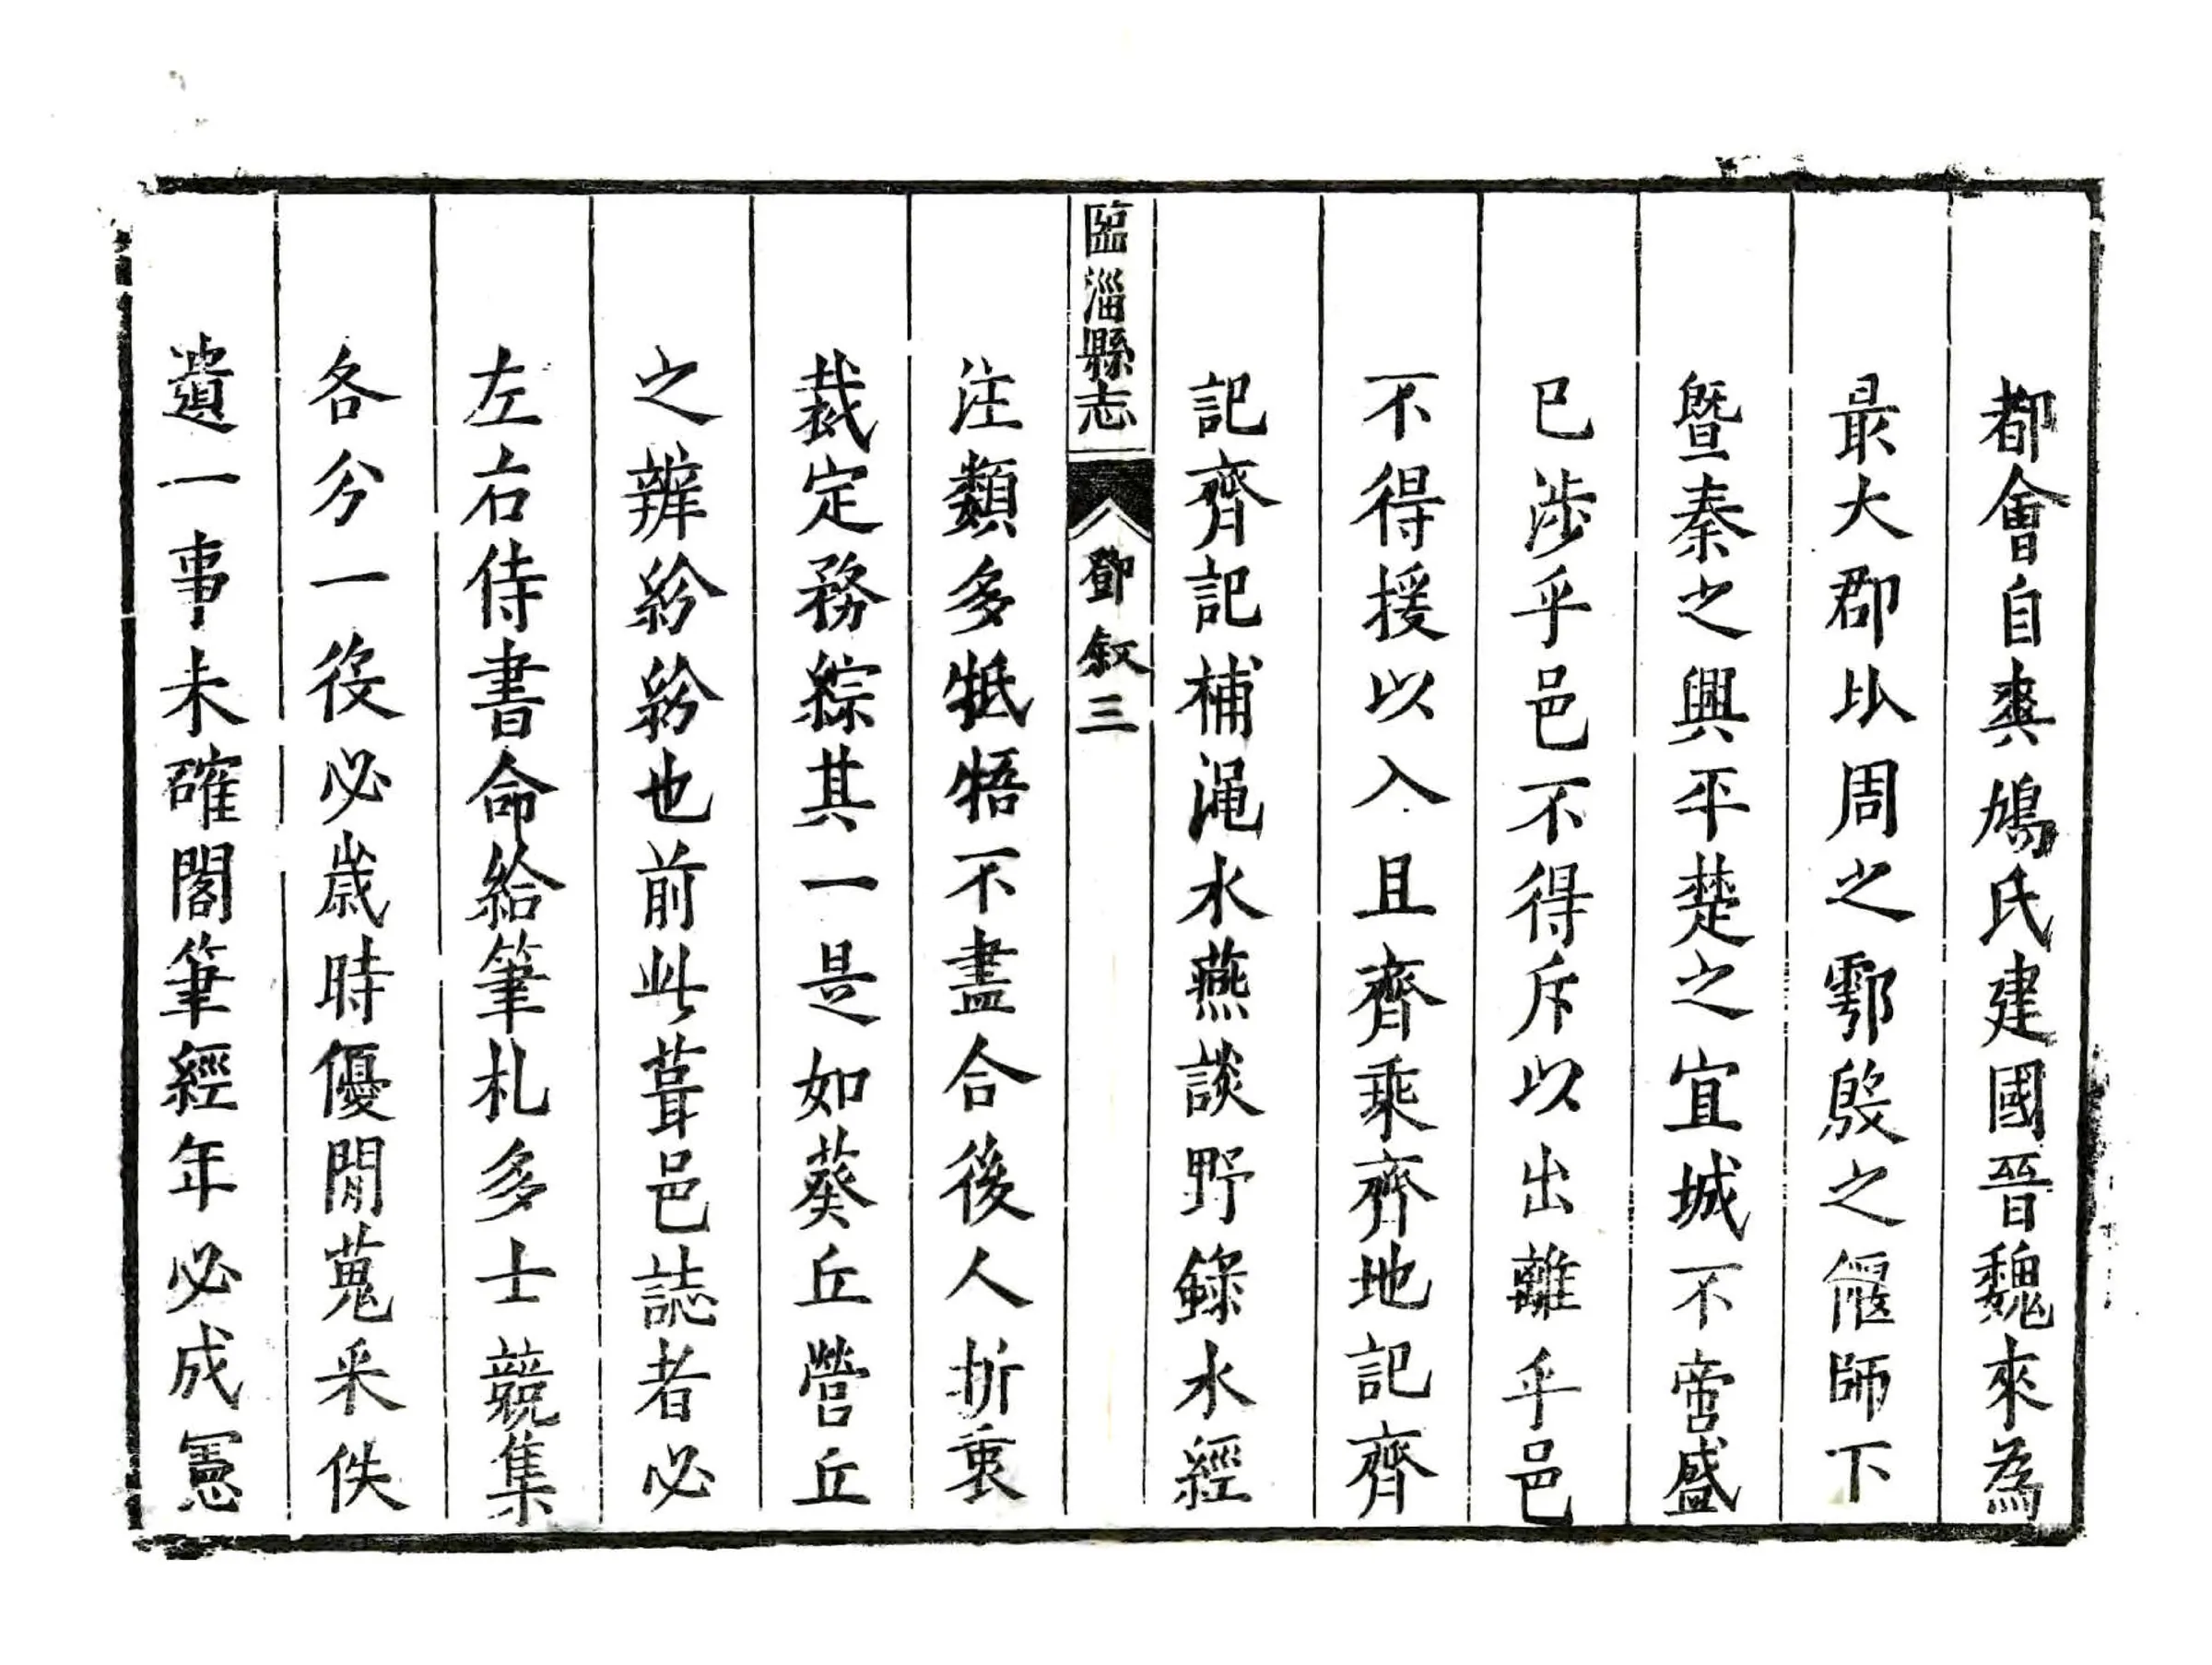 都會自爽鳩氏建國晉魏來為
最大郡比周之鄠殷之偃師下
曁秦之興平楚之宜城不啻盛
已涉乎邑不得斥以出離乎邑
不得援以入且齊乘齊地記齊
記齊記補澠水燕談野錄水經
臨淄縣志
鄧叙三
注類多牴牾不盡合後人折衷
裁定務綜其一是如葵丘營丘
之辨紛紛也前此葺邑誌者必
左右侍書命給筆札多士競集
各分一役必歲時優閒蒐采佚
遺一事未確閣筆經年必成憲